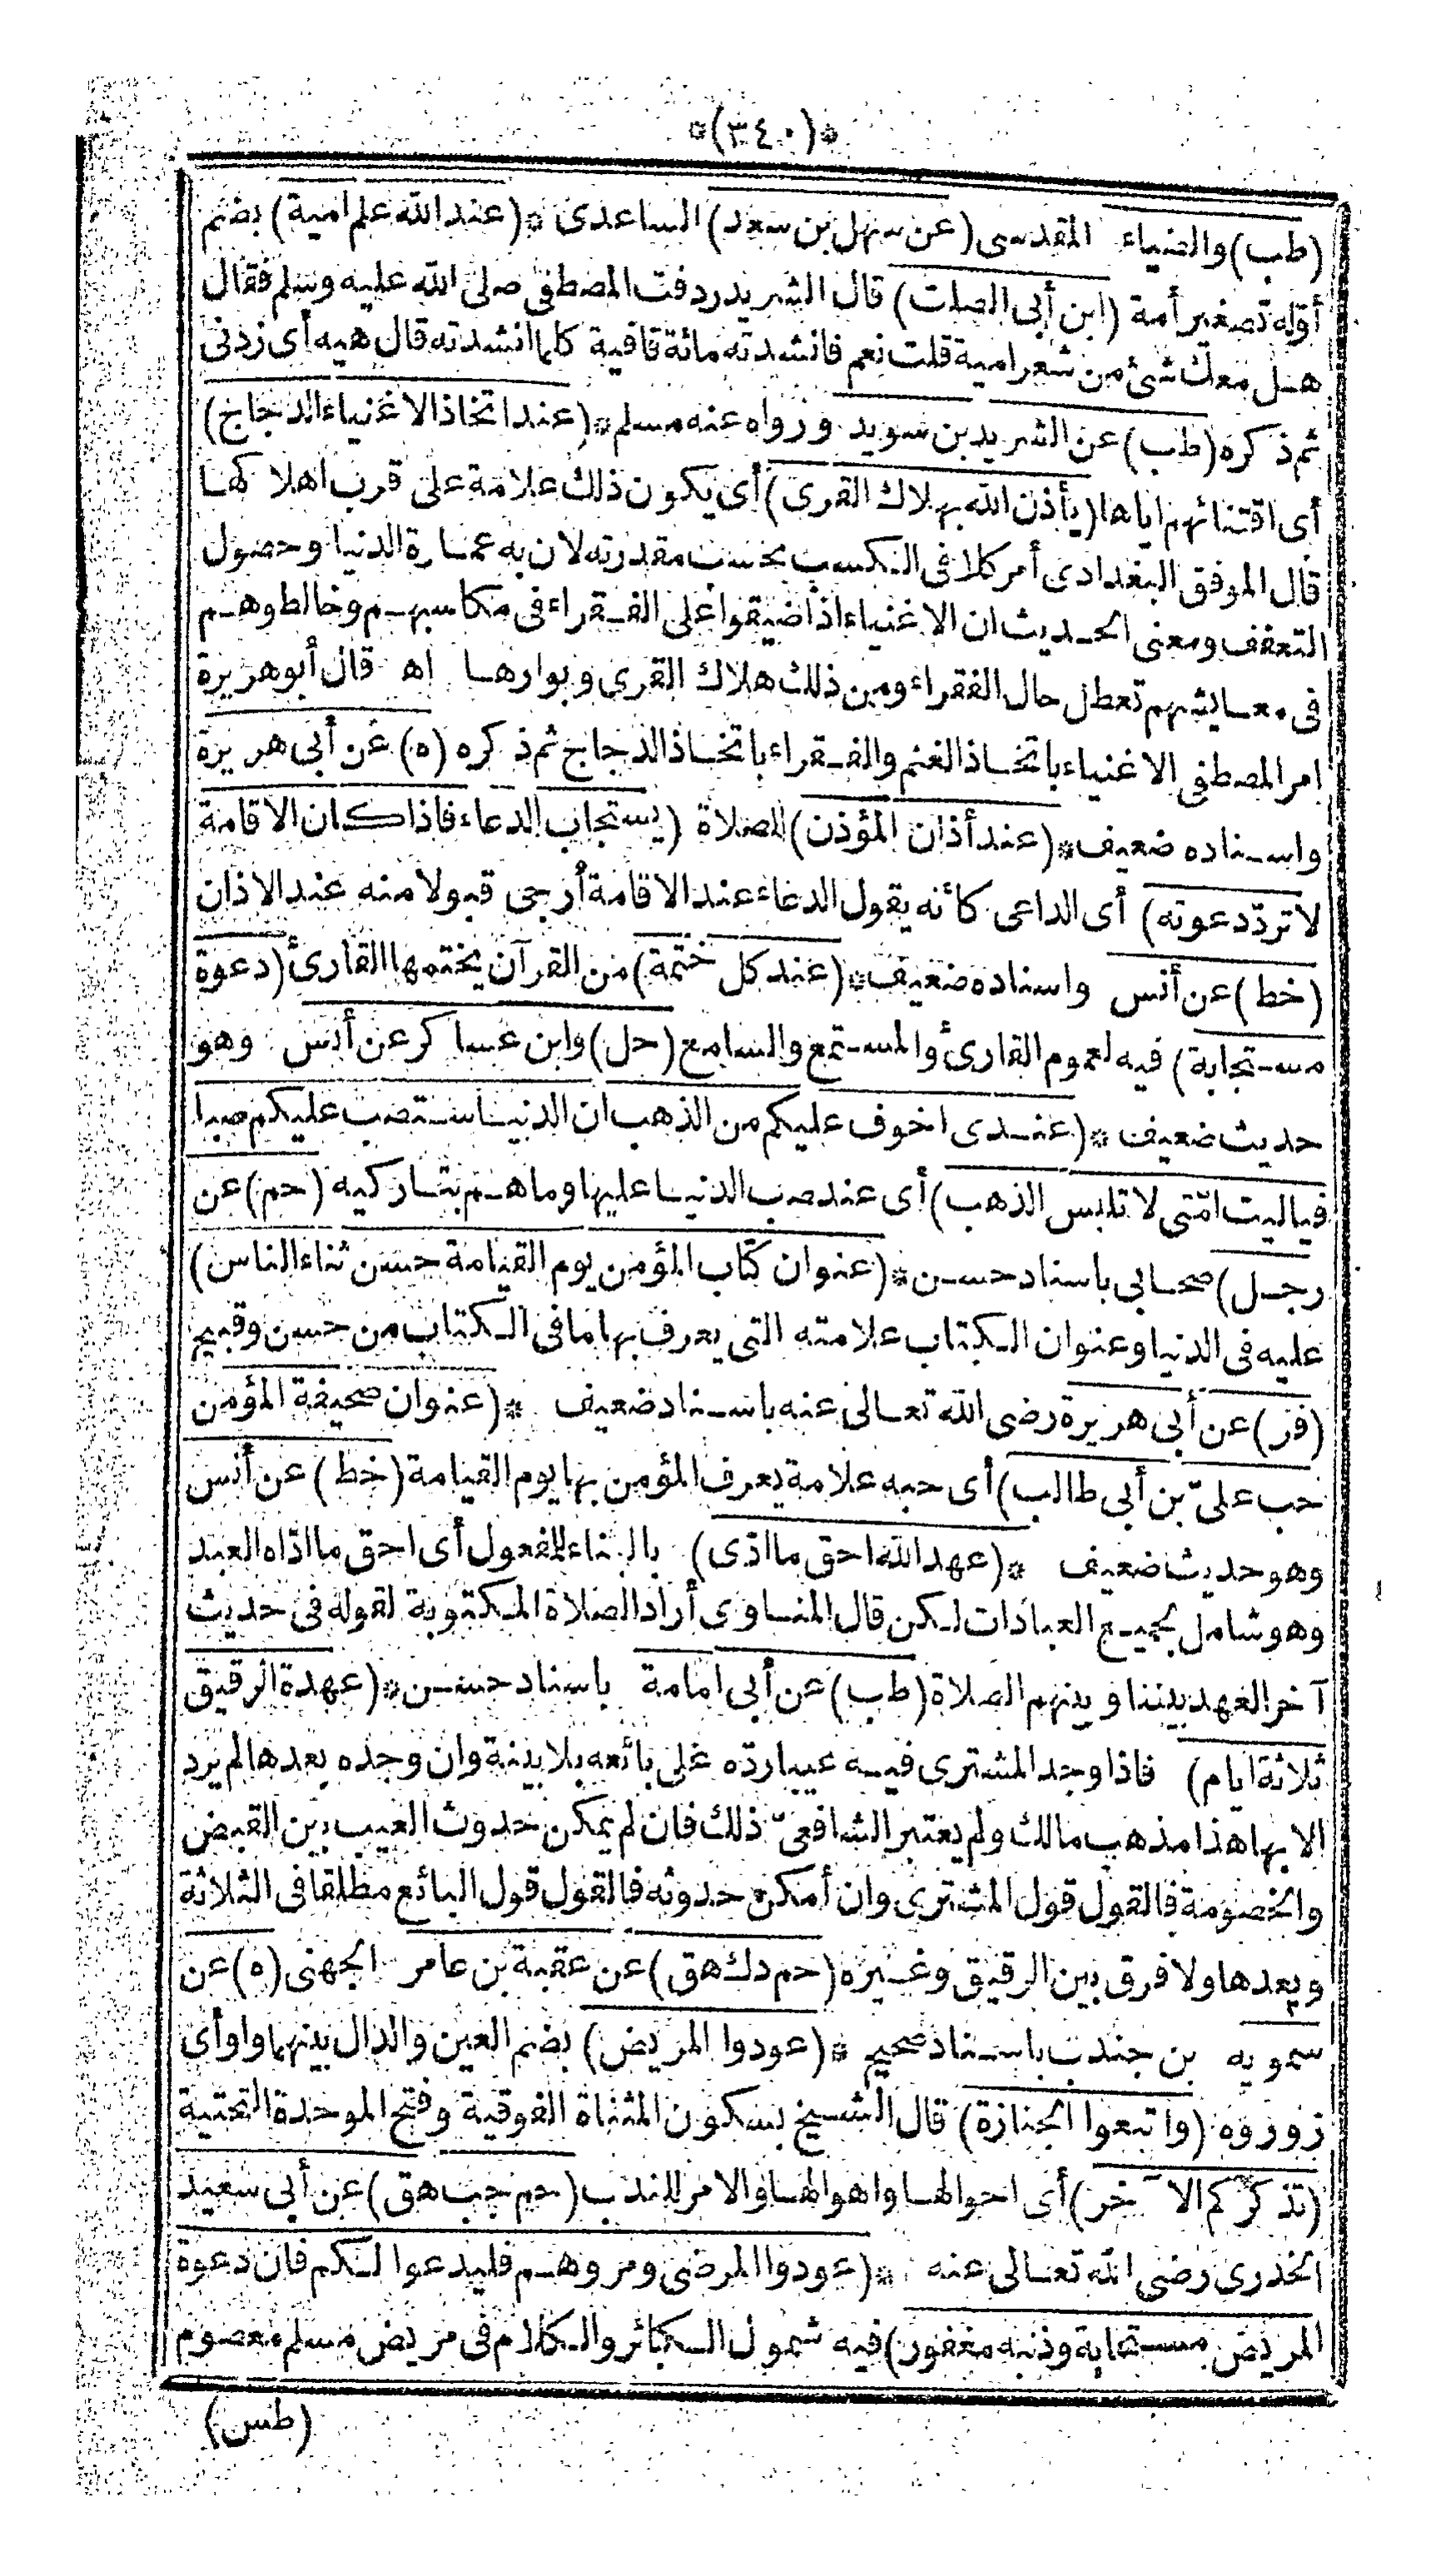 *(٣٤٠)*
(طب) والضياء المقدسى (عن سهل بن سعد) الساعدى *(عند الله علم امية) بضم
أوّله تصغير أمة (ابن أبى الصلت) قال الشريد ردفت المصطفى صلى الله عليه وسلم فقال
هل معك شئ من شعر امية قلت نعم فانشدته مائة قافية كلما انشدته قال هيه أى زدنى
ثم ذكره (طب) عن الشريد بن سويد ورواه عنه مسلم *(عند اتخاذ الاغنياء الدجاج)
أى اقتنائهم اياها (يأذن الله بهلاك القرى) أى يكون ذلك علامة على قرب اهلاكها
قال الموفق البغدادى أمر كلا فى التكسب بحسب مقدرته لان به عمارة الدنيا وحصول
التعفف ومعنى الحديث ان الاغنياء اذا ضيقوا على الفقراء فى مكاسبهم وخالطوهم
فى معايشهم تعطل حال الفقراء ومن ذلك هلاك القرى وبوارها اه قال أبو هريرة
امر المصطفى الاغنياء باتخاذ الغنم والفقراء باتخاذ الدجاج ثم ذكره (ه) عن أبى هريرة
واسناده ضعيف *(عند أذان المؤذن) للصلاة (يستجاب الدعاء فاذا كان الاقامة
لا تردّ دعوته) أى الداعى كأنه يقول الدعاء عند الاقامة أرجى قبولا منه عند الاذان
(خط) عن أنس واسناده ضعيف *(عند كل ختمة) من القرآن يختمها القارئ (دعوة
مستجابة) فيه لعموم القارئ والمستمع والسامع (حل) وابن عساكر عن أنس وهو
حديث ضعيف *(عندى اخوف عليكم من الذهب ان الدنيا ستصب عليكم صبا
فياليت امّتى لا تلبس الذهب) أى عند صب الدنيا عليها وما هم بتاركيه (حم) عن
رجل) صحابى باسناد حسن *(عنوان كتاب المؤمن يوم القيامة حسن ثناء الناس)
عليه فى الدنيا وعنوان الكتاب علامته التى يعرف بها ما فى الكتاب من حسن وقبيح
(فر) عن أبى هريرة رضى الله تعالى عنه باسناد ضعيف *(عنوان صحيفة المؤمن
حب علىّ بن أبى طالب) أى حبه علامة يعرف المؤمن بها يوم القيامة (خط) عن أنس
وهو حديث ضعيف *(عهد الله احق ما ادّى) بالبناء للمفعول أى احق ما ادّاه العبد
وهو شامل لجميع العبادات لكن قال المناوى أراد الصلاة المكتوبة لقوله فى حديث
آخر العهد بيننا وبينهم الصلاة (طب) عن أبى امامة باسناد حسن *(عهدة الرقيق
ثلاثة ايام) فاذا وجد المشترى فيه عيبا ردّه على بائعه بلا بينة وان وجده بعدها لم يرد
الا بها هذا مذهب مالك ولم يعتبر الشافعىّ ذلك فان لم يمكن حدوث العيب بين القبض
والخصومة فالقول قول المشترى وان أمكن حدوثه فالقول قول البائع مطلقا فى الثلاثة
وبعدها ولا فرق بين الرقيق وغيره (حم د ك هق) عن عقبة بن عامر الجهنى (ه) عن
سمويه بن جندب باسناد صحيح *(عودوا المريض) بضم العين والدال بينهما واو أى
زوروه (واتبعوا الجنازة) قال الشيخ بسكون المثناة الفوقية وفتح الموحدة التحتية
(تذكركم الآخر) أى احوالها واهوالها والامر للندب (حم حب هق) عن أبى سعيد
الخدرى رضى الله تعالى عنه *(عودوا المرضى ومروهم فليدعوا لكم فان دعوة
المريض مستجابة وذنبه مغفور) فيه شمول الكبائر والكلام فى مريض مسلم معصوم
(طس)